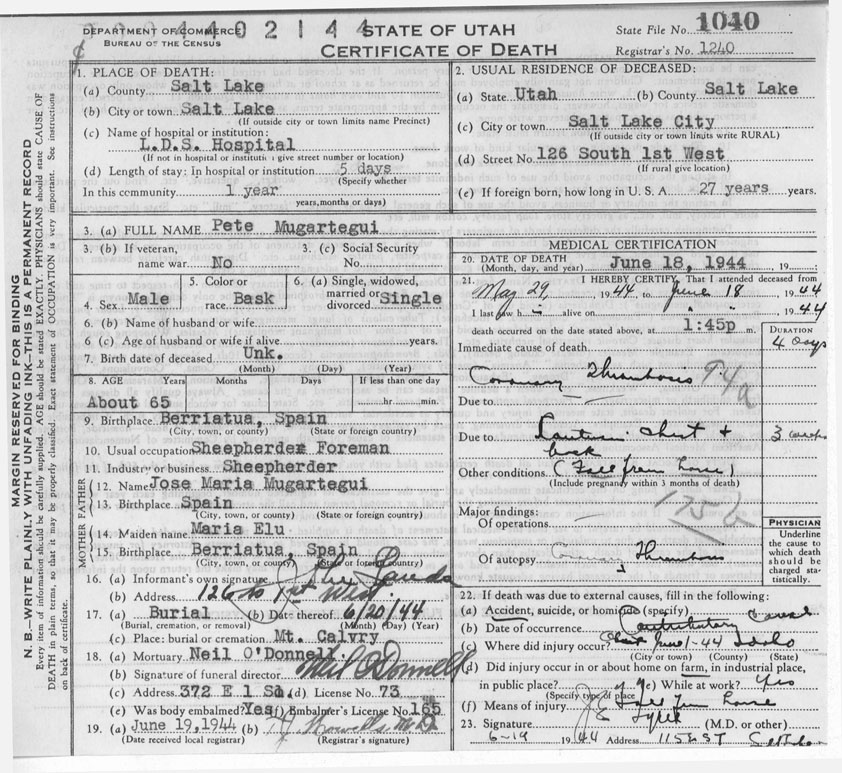 4402144
DEPARTMENT OF COMMERCE
BUREAU OF THE CENSUS
STATE OF UTAH
CERTIFICATE OF DEATH
State File No. 1040
Registrar's No. 1240
MARGIN RESERVED FOR BINDING
N. B.—WRITE PLAINLY WITH UNFADING INK—THIS IS A PERMANENT RECORD
Every item of information should be carefully supplied. AGE should be stated EXACTLY. PHYSICIANS should state CAUSE OF
DEATH in plain terms, so that it may be properly classified. Exact statement of OCCUPATION is very important. See instructions
on back of certificate.
1. PLACE OF DEATH:
(a) County Salt Lake
(b) City or town Salt Lake
(If outside city or town limits name Precinct)
(c) Name of hospital or institution:
L.D.S. Hospital
(If not in hospital or institution give street number or location)
(d) Length of stay: In hospital or institution 5 days
(Specify whether
In this community 1 year
years, months or days)
2. USUAL RESIDENCE OF DECEASED:
(a) State Utah (b) County Salt Lake
(c) City or town Salt Lake City
(If outside city or town limits write RURAL)
(d) Street No. 126 South 1st West
(If rural give location)
(e) If foreign born, how long in U. S. A. 27 years years.
3. (a) FULL NAME Pete Mugartegui
3. (b) If veteran,
name war No
3. (c) Social Security
No.
4. Sex Male
5. Color or
race Bask
6. (a) Single, widowed,
married or
divorced Single
6. (b) Name of husband or wife
6. (c) Age of husband or wife if alive years.
7. Birth date of deceased Unk.
(Month) (Day) (Year)
8. AGE Years Months Days If less than one day
About 65 hr. min.
9. Birthplace Berriatua, Spain
(City, town, or county) (State or foreign country)
10. Usual occupation Sheepherder Foreman
11. Industry or business Sheepherder
FATHER
12. Name Jose Maria Mugartegui
13. Birthplace Spain
(City, town, or county) (State or foreign country)
MOTHER
14. Maiden name Maria Elu
15. Birthplace Berriatua, Spain
(City, town, or county) (State or foreign country)
16. (a) Informant's own signature
(b) Address 126 So 1st West
17. (a) Burial (b) Date thereof 6/20/44
(Burial, cremation, or removal) (Month) (Day) (Year)
(c) Place: burial or cremation Mt. Calvry
18. (a) Mortuary Neil O'Donnell
(b) Signature of funeral director Neil O'Donnell
(c) Address 372 E 1 So. (d) License No. 73
(e) Was body embalmed? Yes (f) Embalmer's License No. 165
19. (a) June 19, 1944 (b) M.D.
(Date received local registrar) (Registrar's signature)
MEDICAL CERTIFICATION
20. DATE OF DEATH
(Month, day, and year) June 18, 1944, 19
21. I HEREBY CERTIFY, That I attended deceased from
May 29, 1944 to June 18, 1944
I last saw h alive on " " 1944
death occurred on the date stated above, at 1:45p m.
DURATION
Immediate cause of death 4 days
Coronary Thrombosis 94a
Due to
Due to Contusion chest + 3 weeks
back
Other conditions (Fall from horse)
(Include pregnancy within 3 months of death)
175b
Major findings:
Of operations
Of autopsy Coronary Thrombosis
PHYSICIAN
Underline
the cause to
which death
should be
charged sta-
tistically.
22. If death was due to external causes, fill in the following:
(a) Accident, suicide, or homicide (specify)
(b) Date of occurrence Contributory Cause
(c) Where did injury occur? About June 1-44 Idaho
(City or town) (County) (State)
(d) Did injury occur in or about home on farm, in industrial place,
in public place? (e) While at work? Yes
(Specify type of place)
(f) Means of injury Fall from horse
23. Signature (M.D. or other)
6-19 1944 Address 115 E S T